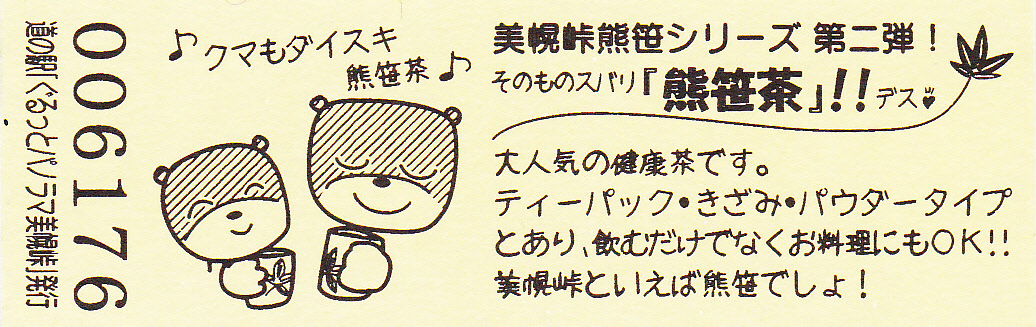 道の駅「ぐるっとパノラマ美幌峠」発行
006176
♪クマもダイスキ
熊笹茶♪
美幌峠熊笹シリーズ 第二弾!
そのものズバリ『熊笹茶』!!デス♥
大人気の健康茶です。
ティーパック・きざみ・パウダータイプ
とあり、飲むだけでなくお料理にもOK!!
美幌峠といえば熊笹でしょ!